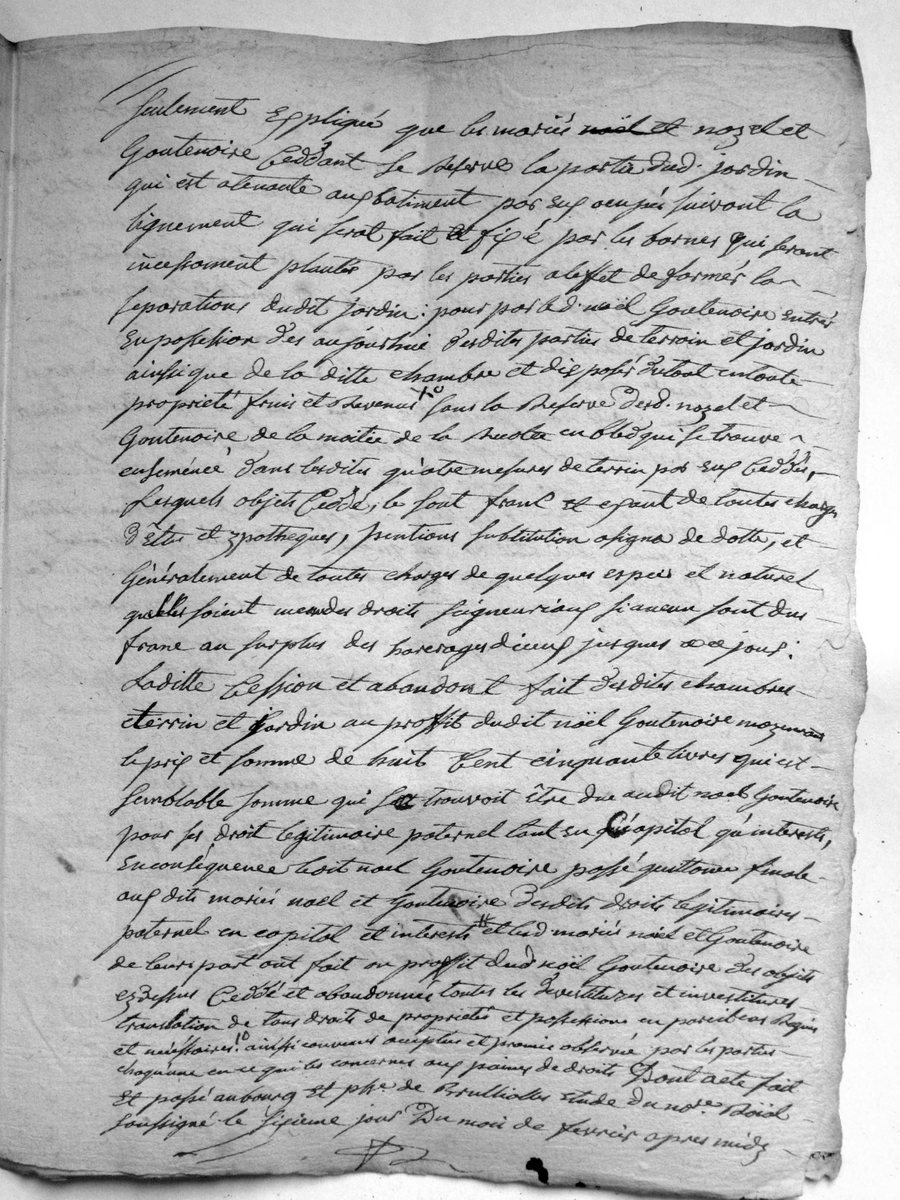 seulement Expliqué que les mariés noël et nozel et
Goutenoire Ceddant se Reserve la partie dud. jardin
qui est atenante aux batiment par eux ocupés suivant la
lignement qui serat fait et fixé par les bornes qui seront
incessament plantés par les parties aleffet de former la
separations dudit jardin: pour par led. noël Goutenoire entrés
En possession des aujourhuie desdites parties de terrein et jardin
ainssi que de la ditte chambre et disposé du tout en toute
propriété fruis et Revenus sous la Reserve desd. nozel et
Goutenoire de la moitée de la Recolte en bled qui se trouve
ensémencé dans lesdites quatre mesures de terrin par eux Ceddés,
Lesquels objets Ceddé, le sont franc et exant de toutes charges
dettes et ypotheques, pentions substitution asigna de dotte, et
Généralement de toutes charges de quelques especes et naturel
quelles soient des droits seigneuriaux si aucun sont dus
franc au surplus des harerages dieux jusques a ce jour:
Laditte Cession et abandont fait desdites chambres
terrin et jardin au proffit dudit noël Goutenoire moyennant
le prix et somme de huit Cent cinquante livres qui est
semblable somme qui se trouvoit être due audit noel Goutenoire
pour ses droit legitimaire paternel tant en Capital qu'interests,
En conséquence ledit noel Goutenoire passé quittance finale
aux dits mariés noël et Goutenoire desdits droits legitimaires
paternel en capital et interests et lesd. mariés noël et Goutenoire
de leurs part ont fait au proffit dud noël Goutenoire des objets
cydessus Ceddé et abandonnés toutes les devestitures et investitures
translation de tous droits de propriétés et possessions en pareil cas Requis
et nécéssaires. ainssi convenus acceptes et promis observé par les parties
chaquune en ce qui les concernes aux paines de droits Dont acte fait
et passé au bourg et phe. de Brullioles Etude du nore.
soussigné le sixieme jour Du mois de fevrier apres midy